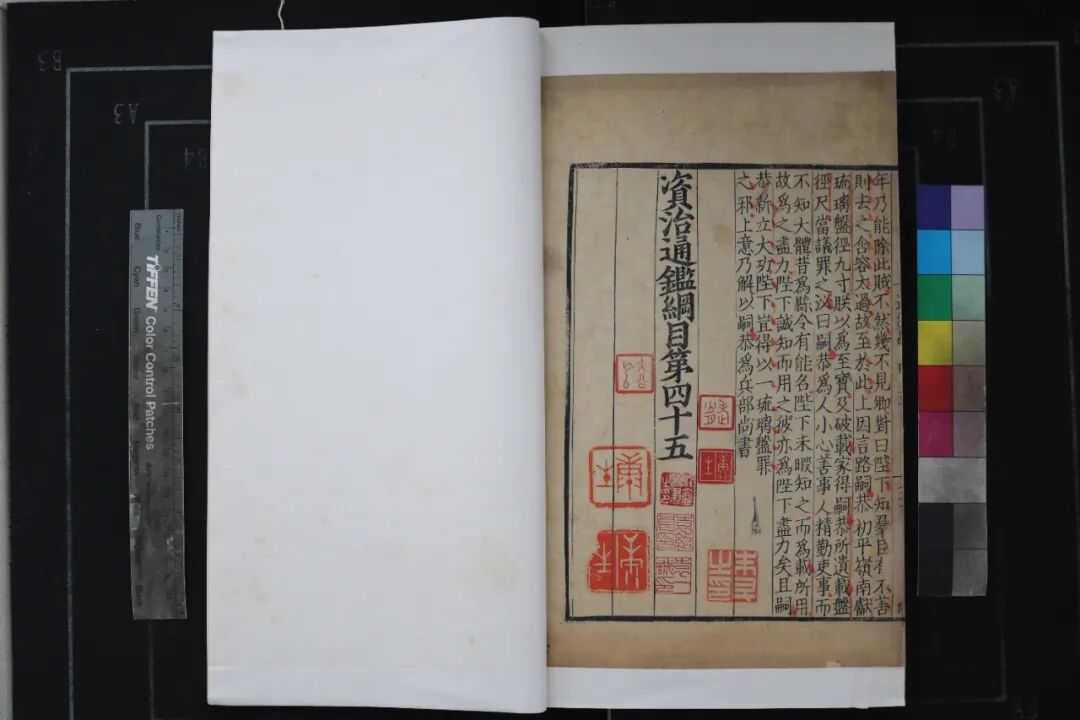 年乃能除此賊不然幾不見卿對曰陛下知羣臣有不善
則去之含容太過故至於此上因言路嗣恭初平嶺南獻
琉璃盤徑九寸朕以為至寶及破載家得嗣恭所遺載盤
徑尺當議罪之泌曰嗣恭為人小心善事人精勤吏事而
不知大體昔為縣令有能名陛下未暇知之而為載所用
故為之盡力陛下誠知而用之彼亦為陛下盡力矣且嗣
恭新立大功陛下豈得以一琉璃盤罪
之邪上意乃解以嗣恭為兵部尚書
資治通鑑綱目第四十五
B3
A3
B4
A3
TIFFEN Color Control Patches
Centimetres
Blue
Cyan
Green